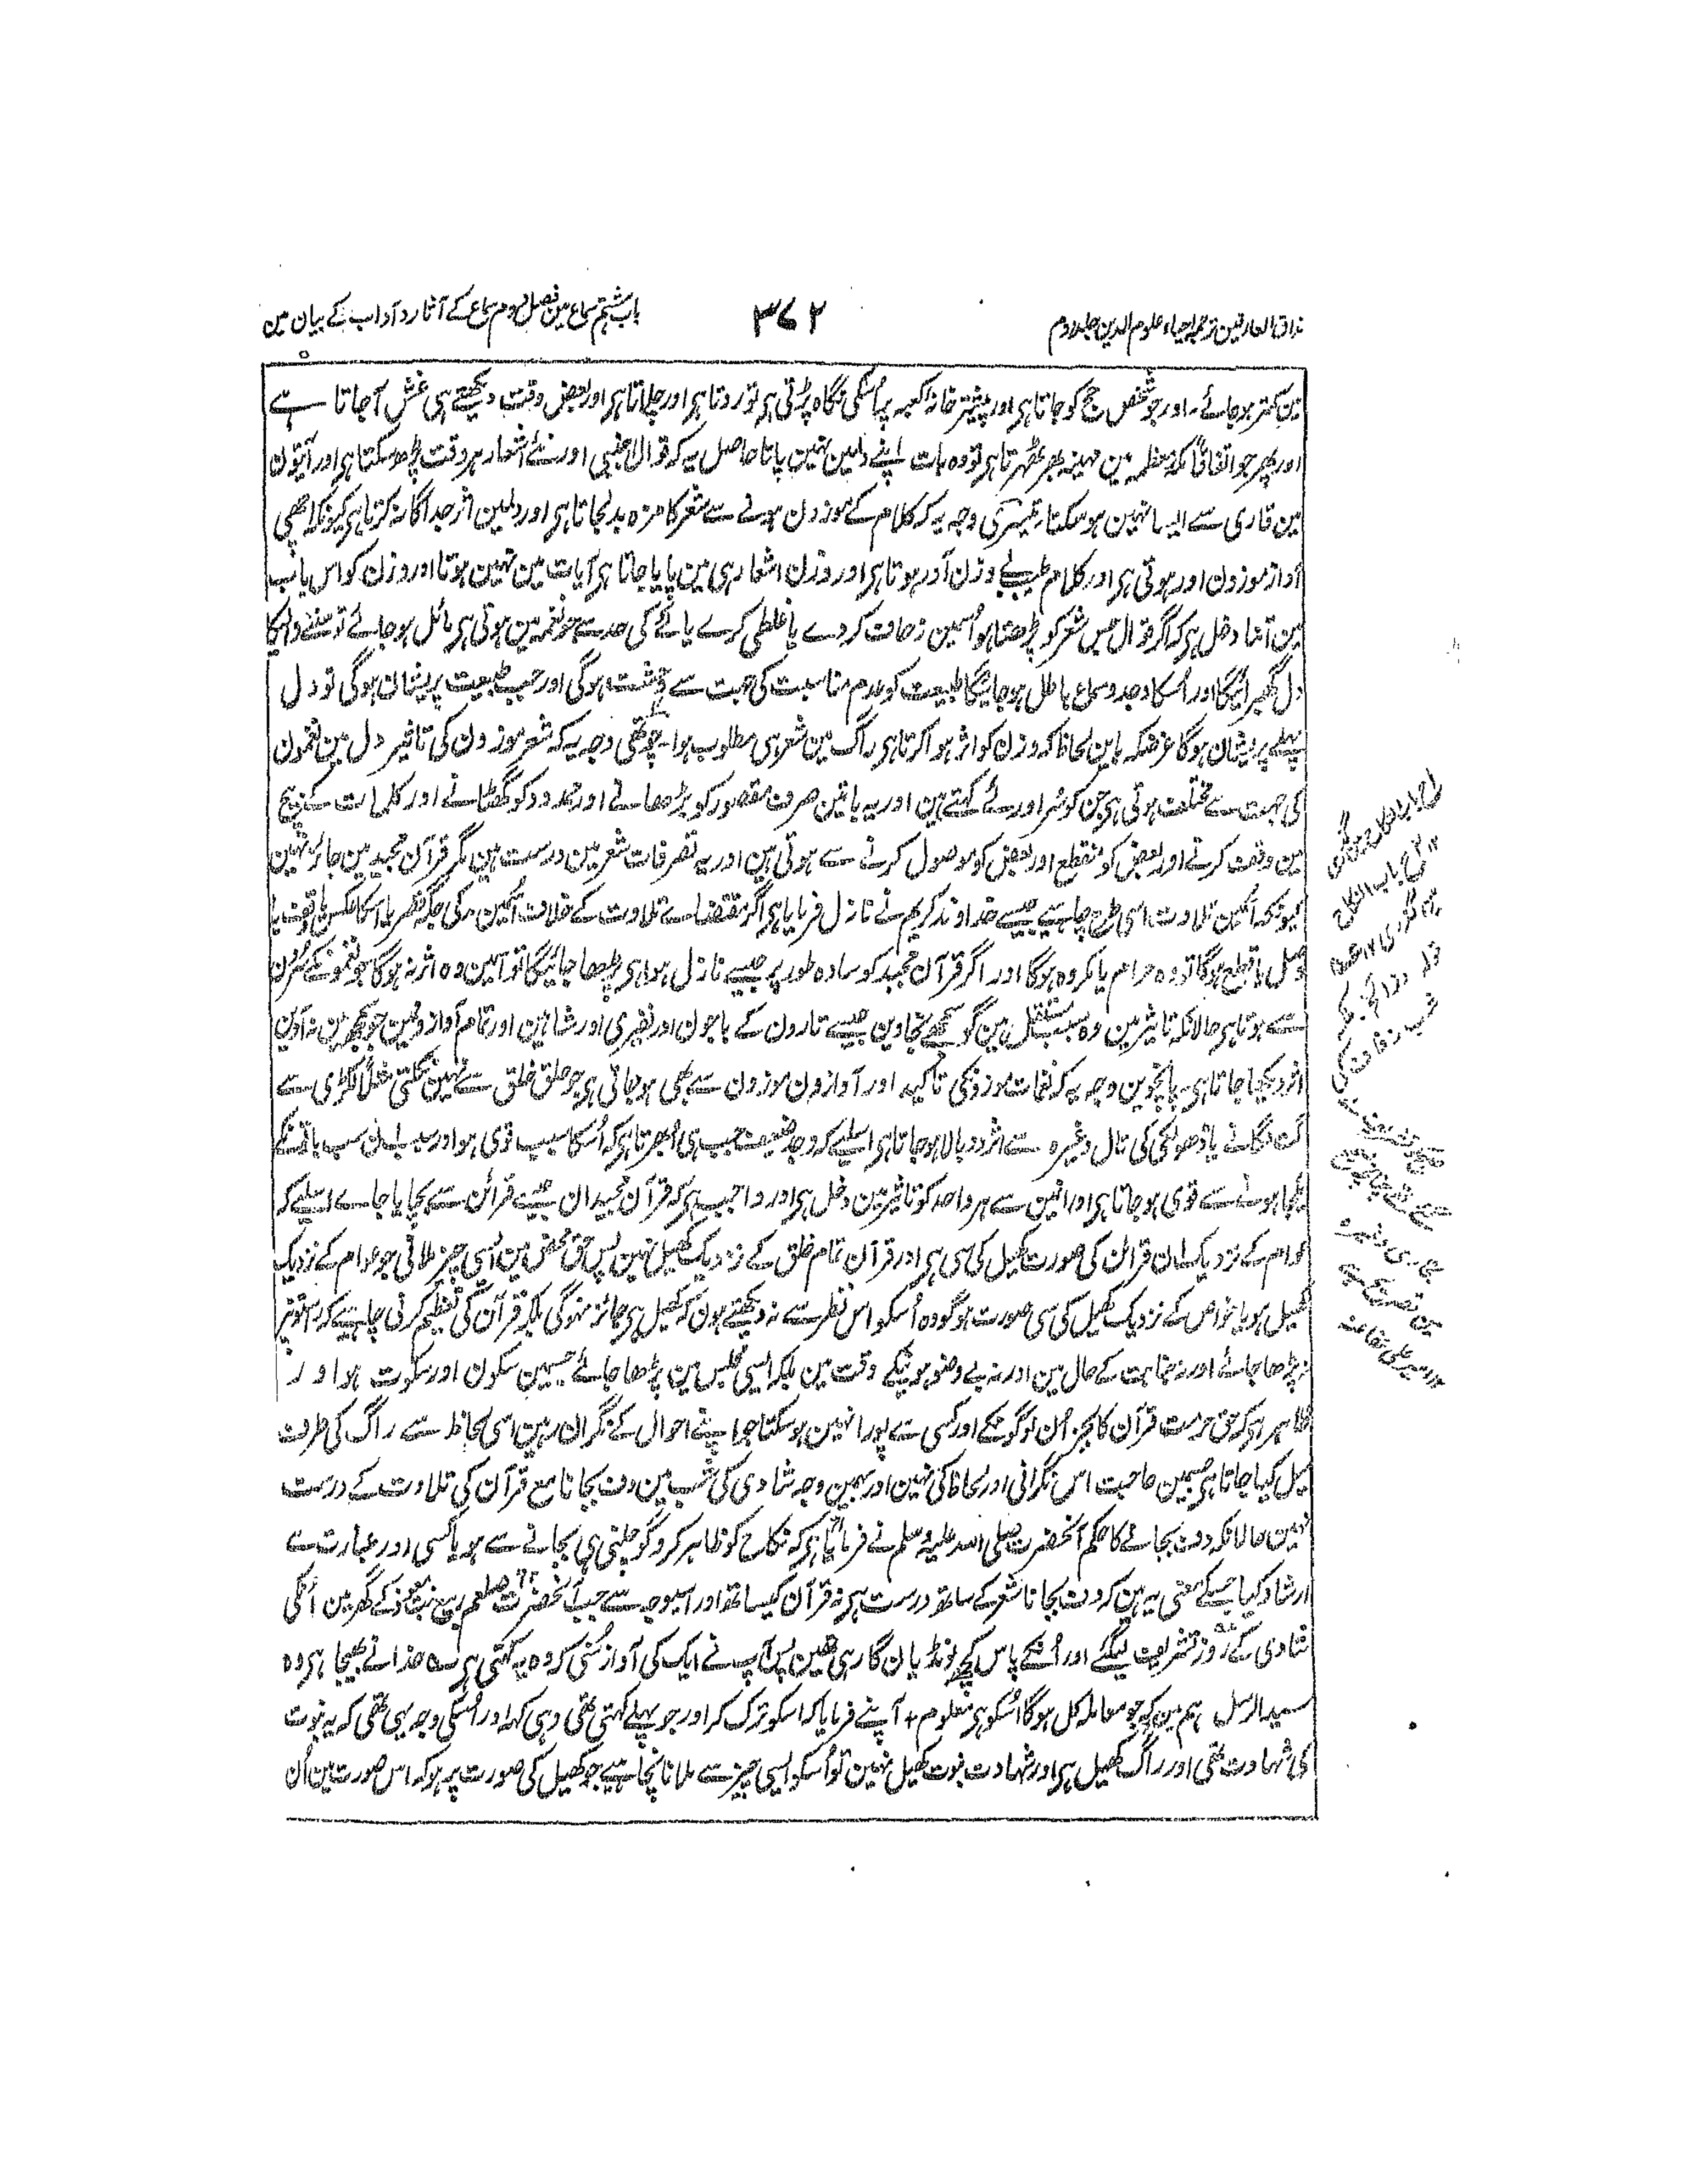 مذاق العارفین ترجمہ احیاء علوم الدین جلد دوم
۳۷۲
باب ہشتم سماع مین فصل دوم سماع کے آثار و آداب کے بیان مین
مین کمتر ہو جائے۔ اور جو شخص حج کو جاتا ہی اور پیشتر خانہ کعبہ پر اُسکی نگاہ پڑتی ہی تو روتا ہی اور چلاتا ہی اور بعض وقت دیکھتے ہی غش آجاتا ہے
اور پھر جو اتفاقاً مکہ معظمہ مین مہینہ بھر ٹھہرتا ہی تو وہ بات اپنے دلمین نہین پاتا حاصل یہ کہ قوال اجنبی اور نئے اشعار ہر وقت پڑھ سکتا ہی اور آیتون
مین قاری سے ایسا نہین ہو سکتا۔ تیسری وجہ یہ کہ کلام کے موزون ہونے سے شعر کا مزہ بدلجاتا ہی اور دلمین اثر جداگانہ کرتا ہی کیونکہ اچھی
آواز موزون اور ہوتی ہی اور کلام طیب بے وزن اَور ہوتا ہی اور وزن اشعار ہی مین پایا جاتا ہی آیات مین نہین ہوتا اور وزن کو اس باب
مین اتنا دخل ہی کہ اگر قوال جس شعر کو پڑھتا ہو اُسمین زحاف کر دے یا غلطی کرے یا لَے کی حد سے جو نغمہ مین ہوتی ہی مائل ہو جائے تو سننے والیکا
دل گھبرائیگا اور اُسکا وجد و سماع باطل ہو جائیگا طبیعت کو عدم مناسبت کی جہت سے وحشت ہوگی اور جب طبیعت پریشان ہوگی تو دل
پہلے پریشان ہوگا غرضکہ باین لحاظ کہ وزن کو اثر ہوا کرتا ہی راگ مین شعر ہی مطلوب ہوا۔ چوتھی وجہ یہ کہ شعر موزون کی تاثیر دل مین نغمون
کی جہت سے مختلف ہوتی ہی جن کو سُر اور لَے کہتے ہین اور یہ باتین صرف مقصور کو بڑھانے اور ممدود کو گھٹانے اور کلمات کے بیچ
مین وقف کرنے اور بعض کو منقطع اور بعض کو موصول کرنے سے ہوتی ہین اور یہ تصرفات شعر مین درست ہین مگر قرآن مجید مین جائز نہین
کیونکہ اُسمین تلاوت اسی طرح چاہیے جیسے خداوند کریم نے نازل فرمایا ہی اگر مقتضاے تلاوت کے خلاف اُسمین مد کی جگہ قصر یا اُسکا عکس یا وقف یا
وصل یا قطع ہوگا تو وہ حرام یا مکروہ ہوگا اور اگر قرآن مجید کو سادہ طور پر جیسے نازل ہوا ہی پڑھا جائیگا تو اُسمین وہ اثر نہ ہوگا جو نغمونکے سُرون
سے ہوتا ہی حالانکہ تاثیر مین وہ سبب مستقل ہین گو سمجھے نجاوین جیسے تارون کے باجون اور نفیری اور شاہین اور تمام آوازونمین جو سمجھ مین نہ آوین
اثر دیکھا جاتا ہی۔ پانچوین وجہ یہ کہ نغمات موزونکی تاکید اور آوازون موزون سے بھی ہو جاتی ہی جو حلق خلق سے نہین نکلتی مثلاً لکڑی سے
گت لگانے یا ڈھولکی کی تال وغیرہ سے اثر دوبالا ہو جاتا ہی اسلیے کہ وجد ضعیف جب ہی اُبھرتا ہی کہ اُسکا سبب قوی ہو اور سبب ان سب باتونکے
یکجا ہونے سے قوی ہو جاتا ہی اور انمین سے ہر واحد کو تاثیر مین دخل ہی اور واجب ہی کہ قرآن مجید ان جیسے قرائن سے بچایا جاے اسلیے کہ
عوام کے نزدیک ان قرائن کی صورت کھیل کی سی ہی اور قرآن تمام خلق کے نزدیک کھیل نہین پس حق محض مین ایسی چیز ملانی جو عوام کے نزدیک
کھیل ہو یا خواص کے نزدیک کھیل کی سی صورت ہو گو وہ اُسکو اس نظر سے نہ دیکھتے ہون کہ کھیل ہی جائز نہوگی بلکہ قرآن کی تعظیم کرنی چاہیے کہ راستونپر
نہ پڑھا جائے اور نہ جنابت کے حال مین اور نہ بے وضو ہونیکے وقت مین بلکہ ایسی مجلس مین پڑھا جائے جسمین سکون اور سکوت ہو اور
ظاہر ہی کہ حق حرمت قرآن کا بجز اُن لوگونکے اور کسی سے پورا نہین ہو سکتا جو اپنے احوال کے نگران رہین اسی لحاظ سے راگ کی طرف
میل کیا جاتا ہی جسمین حاجت اس نگرانی اور لحاظ کی نہین اور بہمین وجہ شادی کی شب مین دف بجانا مع قرآن کی تلاوت کے درست
نہین حالانکہ دف بجانے کا حکم آنحضرت صلی اللہ علیہ وسلم نے فرمایا ہی کہ نکاح کو ظاہر کرو گو چلنی ہی بجانے سے ہو یا کسی اور عبارت سے
ارشاد کیا جسکے معنی یہ ہین کہ دف بجانا شعر کے ساتھ درست ہی نہ قرآن کیساتھ اور اسیوجہ سے جب آنحضرت صلعم ربیع بنت معوذ کے گھر مین اُنکی
شادی کے روز تشریف لیگئے اور اُنکے پاس کچھ لونڈیان گا رہی تھین پس آپ نے ایک کی آواز سُنی کہ وہ یہ کہتی ہی ۵ خدا نے بھیجا ہی وہ
سید الرسل ہم مین کہ جو معاملہ کل ہوگا اُسکو ہی معلوم + آپنے فرمایا کہ اسکو ترک کر اور جو پہلے کہتی تھی وہی کہہ اور اُسکی وجہ یہی تھی کہ یہ نبوت
کی شہادت تھی اور راگ کھیل ہی اور شہادت نبوت کھیل نہین تو اُسکو ایسی چیز سے ملانا نچاہیے جو کھیل کی صورت پر ہو کہ اس صورت مین اُن